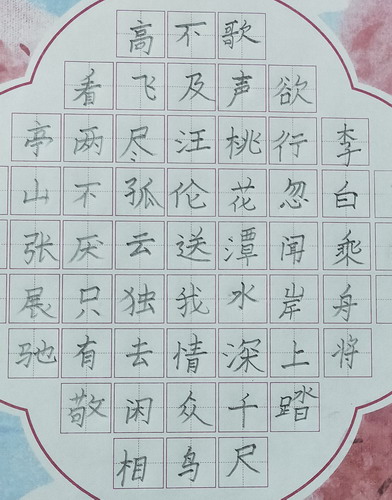 李白乘舟将
欲行忽闻岸上踏
歌声桃花潭水深千尺
不及汪伦送我情众鸟
高飞尽孤云独去闲相
看两不厌只有敬
亭山张展驰